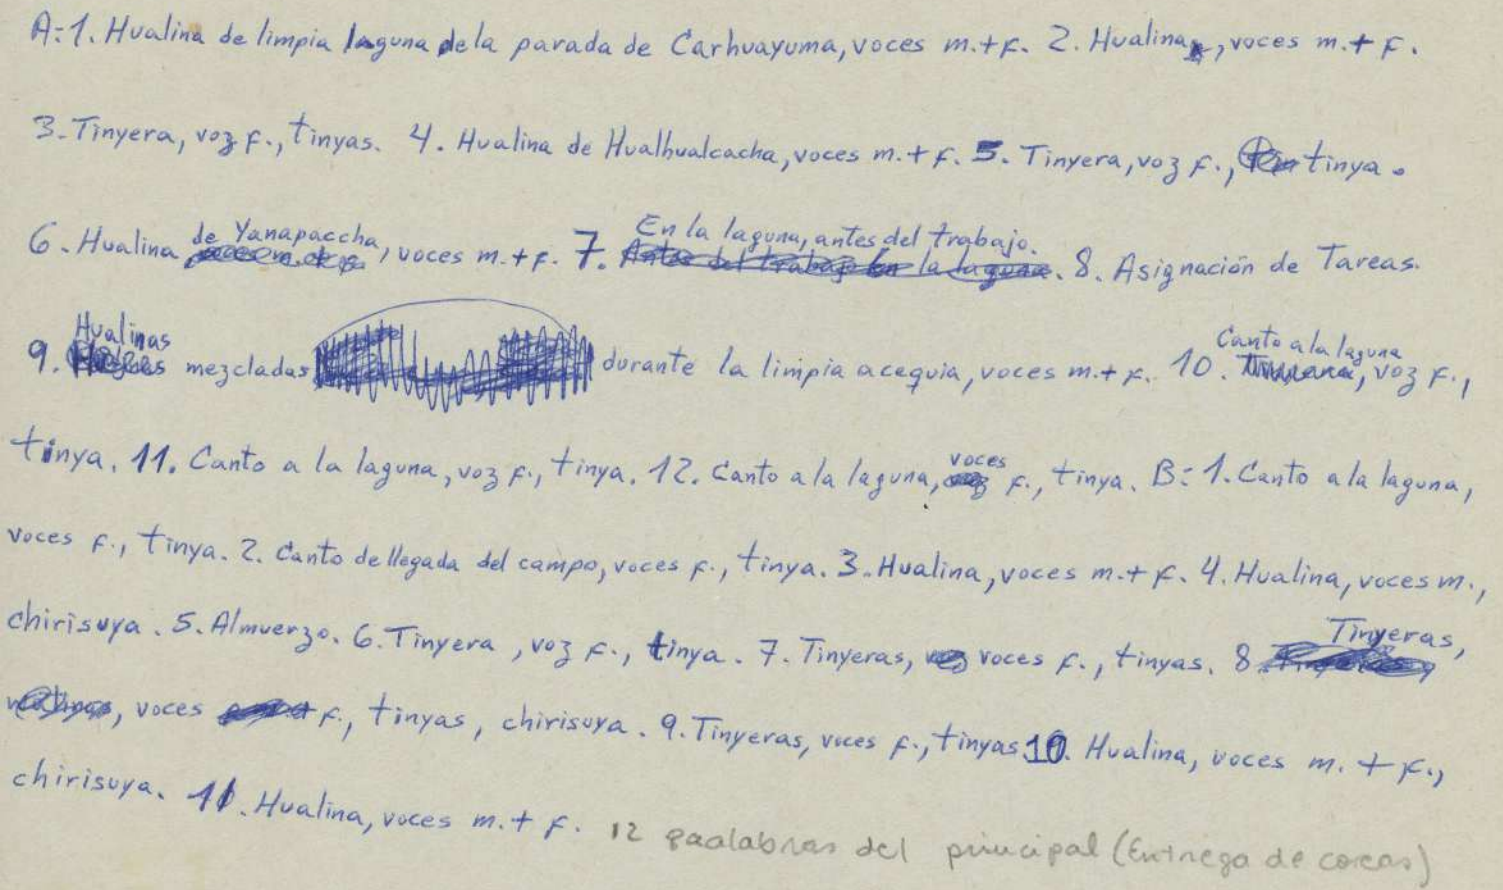 A:1. Hualina de limpia laguna de la parada de Carhuayuma, voces m.+f. 2. Hualina, voces m.+ f.
3. Tinyera, voz f., tinyas. 4. Hualina de Hualhualcacha, voces m.+f. 5. Tinyera, voz f., tinya.
6. Hualina de Yanapaccha, voces m.+f. 7. En la laguna, antes del trabajo. 8. Asignación de Tareas.
9. Hualinas mezcladas durante la limpia acequia, voces m.+ f. 10. Canto a la laguna, voz f.,
tinya. 11. Canto a la laguna, voz f., tinya. 12. Canto a la laguna, voces f., tinya. B: 1. Canto a la laguna,
voces f., tinya. 2. Canto de llegada del campo, voces f., tinya. 3. Hualina, voces m.+ f. 4. Hualina, voces m.,
chirisuya. 5. Almuerzo. 6. Tinyera, voz f., tinya. 7. Tinyeras, voces f., tinyas. 8. Tinyeras,
voces f., tinyas, chirisuya. 9. Tinyeras, voces f., tinyas 10. Hualina, voces m. + f.,
chirisuya. 11. Hualina, voces m.+ f. 12 paalabras del principal (Entrega de coreas)